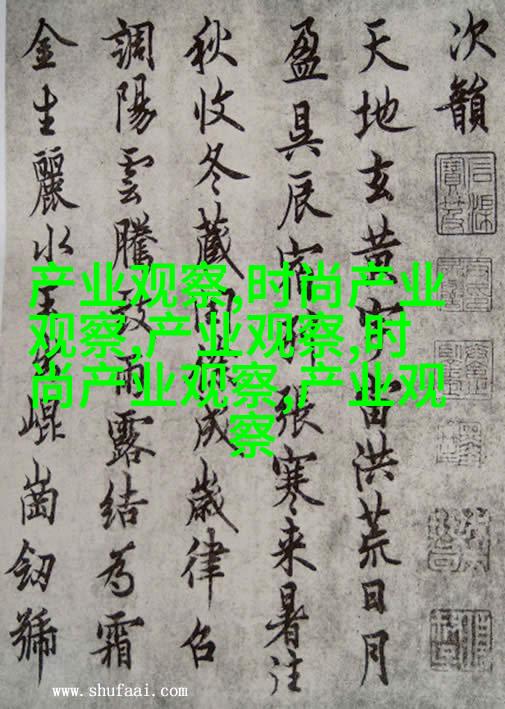 次韻
天地玄黄宇宙洪荒日月
盈昃辰宿列張寒来暑往
秋收冬藏閏餘成歲律召
調陽雲騰致雨露結為霜
金生麗水玉出崐崗劒號
产业观察,时尚产业
观察,产业观察,时
尚产业观察,产业观
察
www.shufaai.com